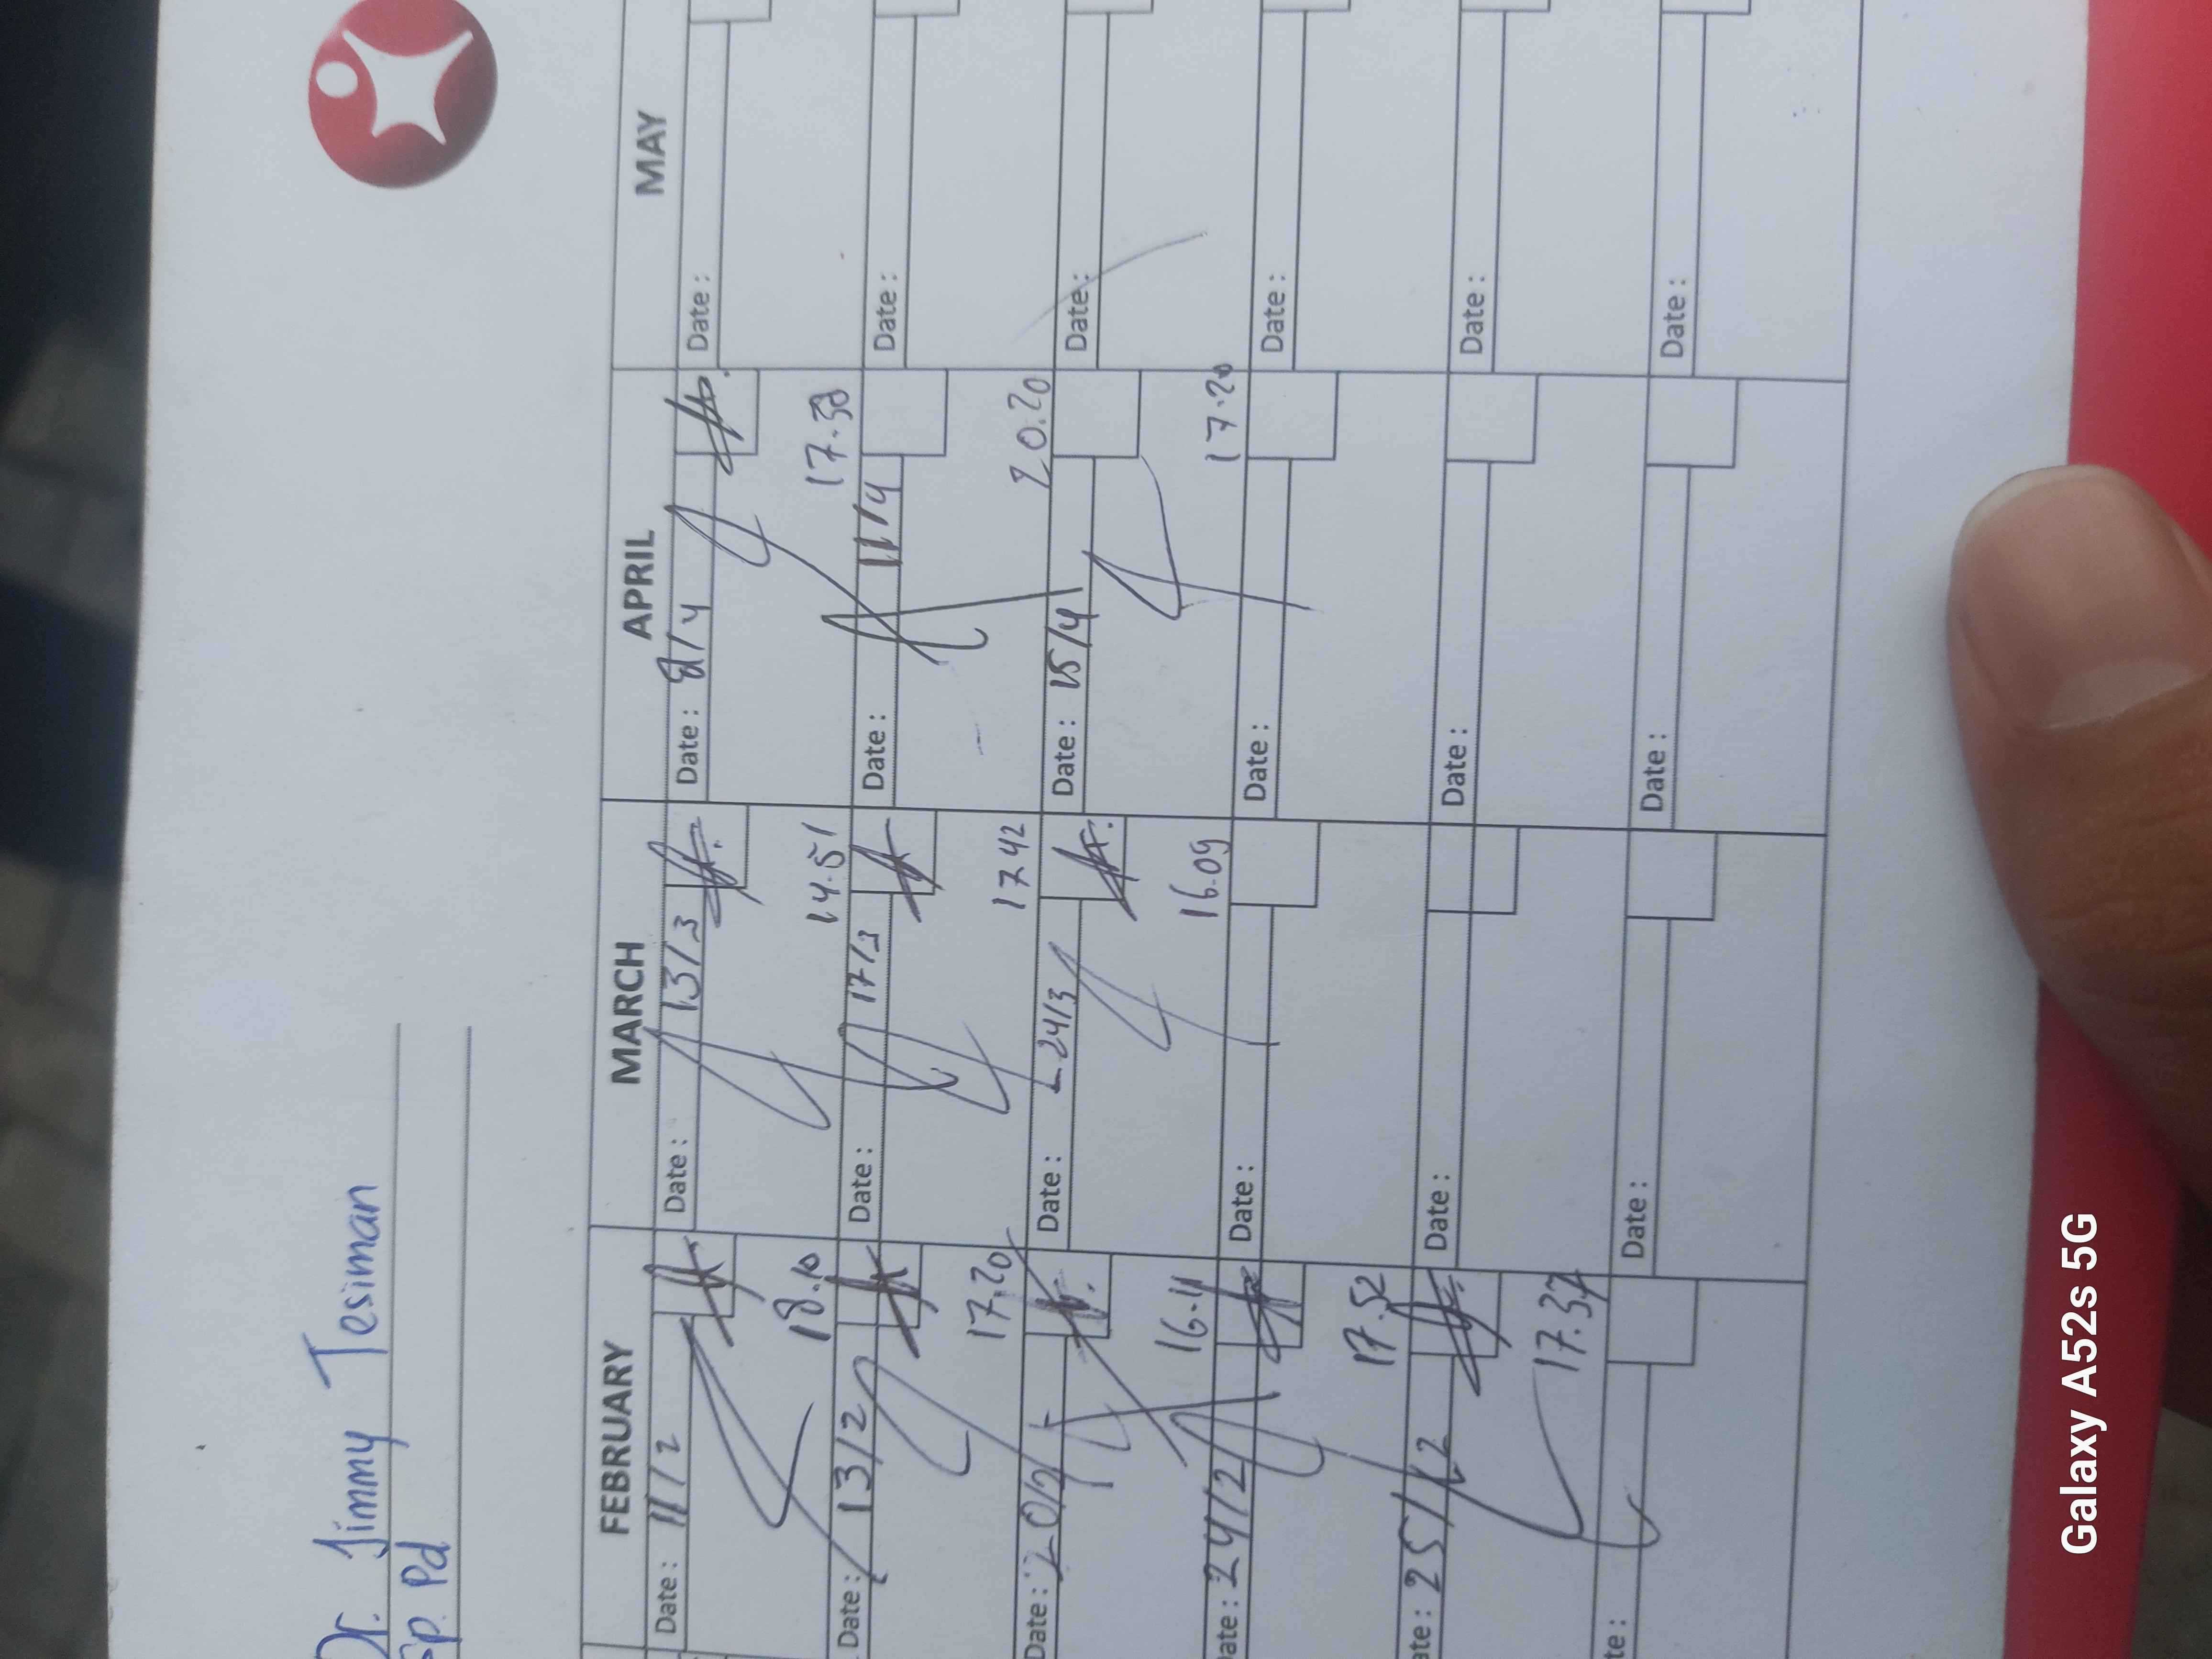 Dr. Jimmy Tesiman
Sp. Pd
FEBRUARY MARCH APRIL MAY
Date : 11/2 Date : 13/3 Date : 8/4 Date :
18.10 14.51 17.38
Date : 13/2 Date : 17/3 Date : 11/4 Date :
17.20 17 42 20.20
Date : 20/2 Date : 24/3 Date : 15/4 Date :
16.11 16.09 17.20
ate : 24/2 Date : Date : Date :
17.52
ate : 25/2 Date : Date : Date :
17.37
te : Date : Date : Date :
Galaxy A52s 5G